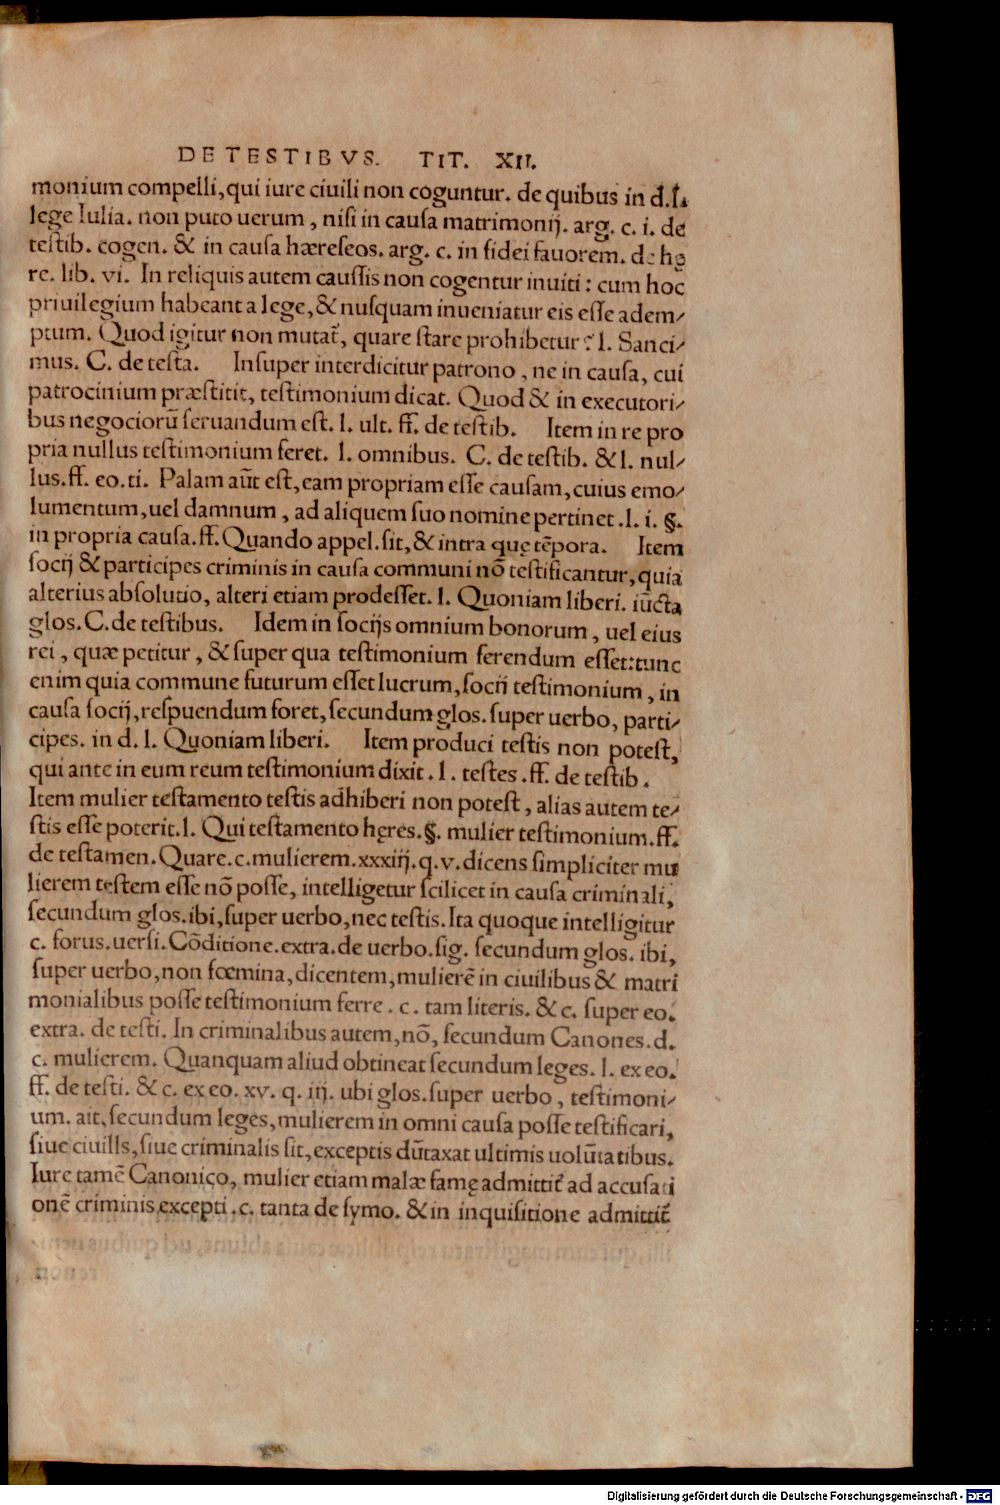 DE TESTIBVS. TIT. XII.
monium compelli, qui iure ciuili non coguntur. de quibus in d. l.
lege Iulia. non puto uerum, nisi in causa matrimonij. arg. c. i. de
testib. cogen. & in causa hæreseos. arg. c. in fidei fauorem. de hę
re. lib. vi. In reliquis autem caussis non cogentur inuiti: cum hoc
priuilegium habeant a lege, & nusquam inueniatur eis esse adem⸗
ptum. Quod igitur non mutat᷑, quare stare prohibetur? l. Sanci⸗
mus. C. de testa. Insuper interdicitur patrono, ne in causa, cui
patrocinium præstitit, testimonium dicat. Quod & in executori⸗
bus negociorū seruandum est. l. ult. ff. de testib. Item in re pro
pria nullus testimonium feret. l. omnibus. C. de testib. & l. nul⸗
lus. ff. eo. ti. Palam aūt est, eam propriam esse causam, cuius emo⸗
lumentum, uel damnum, ad aliquem suo nomine pertinet. l. i. §.
in propria causa. ff. Quando appel. sit, & intra quę tēpora. Item
socij & participes criminis in causa communi nō testificantur, quia
alterius absolutio, alteri etiam prodesset. l. Quoniam liberi. iūcta
glos. C. de testibus. Idem in socijs omnium bonorum, uel eius
rei, quæ petitur, & super qua testimonium ferendum esset: tunc
enim quia commune futurum esset lucrum, socij testimonium, in
causa socij, respuendum foret, secundum glos. super uerbo, parti⸗
cipes. in d. l. Quoniam liberi. Item produci testis non potest,
qui ante in eum reum testimonium dixit. l. testes. ff. de testib.
Item mulier testamento testis adhiberi non potest, alias autem te⸗
stis esse poterit. l. Qui testamento hęres. §. mulier testimonium. ff.
de testamen. Quare. c. mulierem. xxxiij. q. v. dicens simpliciter mu
lierem testem esse nō posse, intelligetur scilicet in causa criminali,
secundum glos. ibi, super uerbo, nec testis. Ita quoque intelligitur
c. forus. uersi. Cōditione. extra. de uerbo. sig. secundum glos. ibi,
super uerbo, non fœmina, dicentem, mulierē in ciuilibus & matri
monialibus posse testimonium ferre. c. tam literis. & c. super eo.
extra. de testi. In criminalibus autem, nō, secundum Canones. d.
c. mulierem. Quanquam aliud obtineat secundum leges. l. ex eo.
ff. de testi. & c. ex eo. xv. q. iij. ubi glos. super uerbo, testimoni⸗
um. ait, secundum leges, mulierem in omni causa posse testificari,
siue ciuills, siue criminalis sit, exceptis dūtaxat ultimis uolūtatibus.
Iure tamē Canonico, mulier etiam malæ famę admittit᷑ ad accusati
onē criminis excepti. c. tanta de symo. & in inquisitione admittit᷑
Digitalisierung gefördert durch die Deutsche Forschungsgemeinschaft - DFG